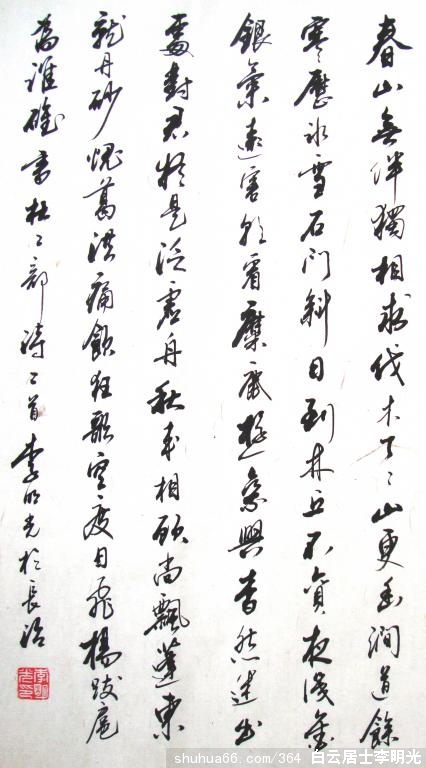 春山無伴獨相求伐木丁丁山更幽澗道餘
寒歷冰雪石門斜日到林丘不貪夜識金
銀氣遠害朝看麋鹿遊乘興杳然迷出
處對君疑是泛虛舟秋來相顧尚飄蓬未
就丹砂愧葛洪痛飲狂歌空度日飛揚跋扈
為誰雄書杜工部詩二首李明光於長治
shuhua66.com/364 白云居士李明光